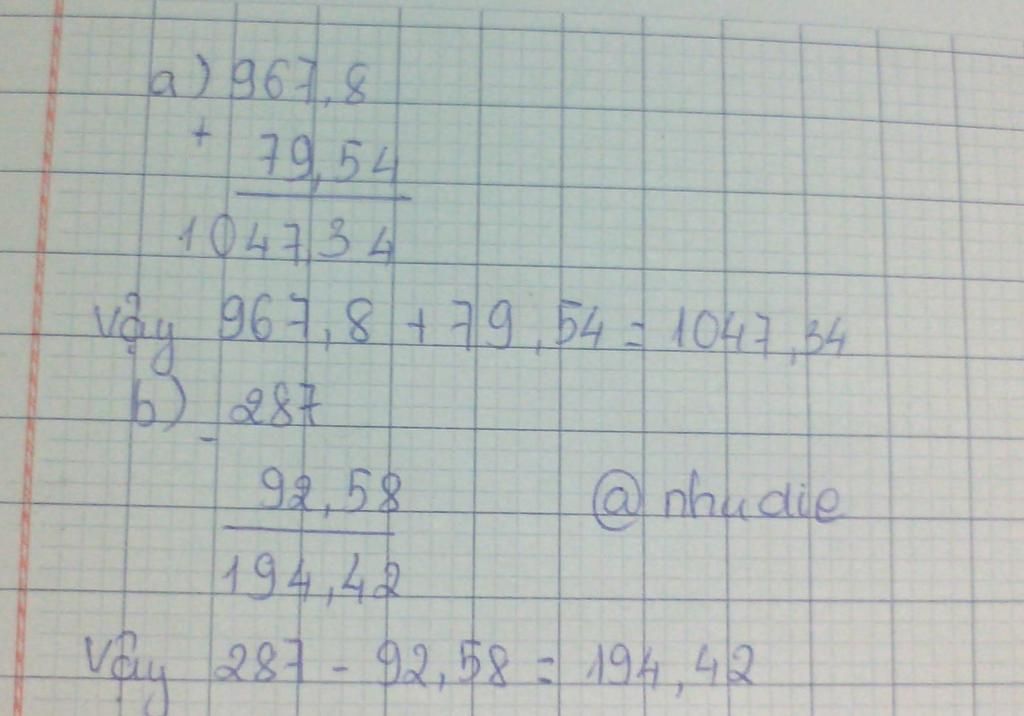 a) 967,8
+
79,54
1047,34
Vậy 967,8 + 79,54 = 1047,34
b) 287
-
92,58
@ nhudie
194,42
Vậy 287 - 92,58 = 194,42